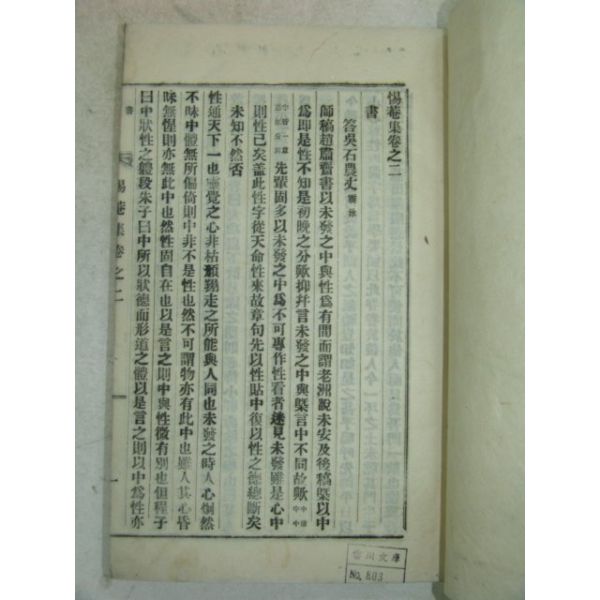 惕菴集卷之二
書
答吳石農丈
師稿趙肅齋書以未發之中與性爲有間而謂老洲說未安及後稿槩以中
爲卽是性不知是初晚之分歟抑幷言未發之中與槩言中不同故歟
先輩固多以未發之中爲不可專作性看者迷見未發雖是心中
則性已矣盖此性字從天命性來故章句先以性貼中復以性之德總斷矣
未知不然否
性通天下一也靈覺之心非枯木死灰之所能與人同也未發之時人心烱然
不昧中體無所偏倚則中非不是性也然不可謂物亦有此中也雖人其心昏
昧無惺則亦無此中也然性固自在也以是言之則中與性微有別也但程子
曰中狀性之體段朱子曰中所以狀德而形道之體以是言之則以中爲性亦
惕菴集卷之二
一
雲川文庫
No. 803